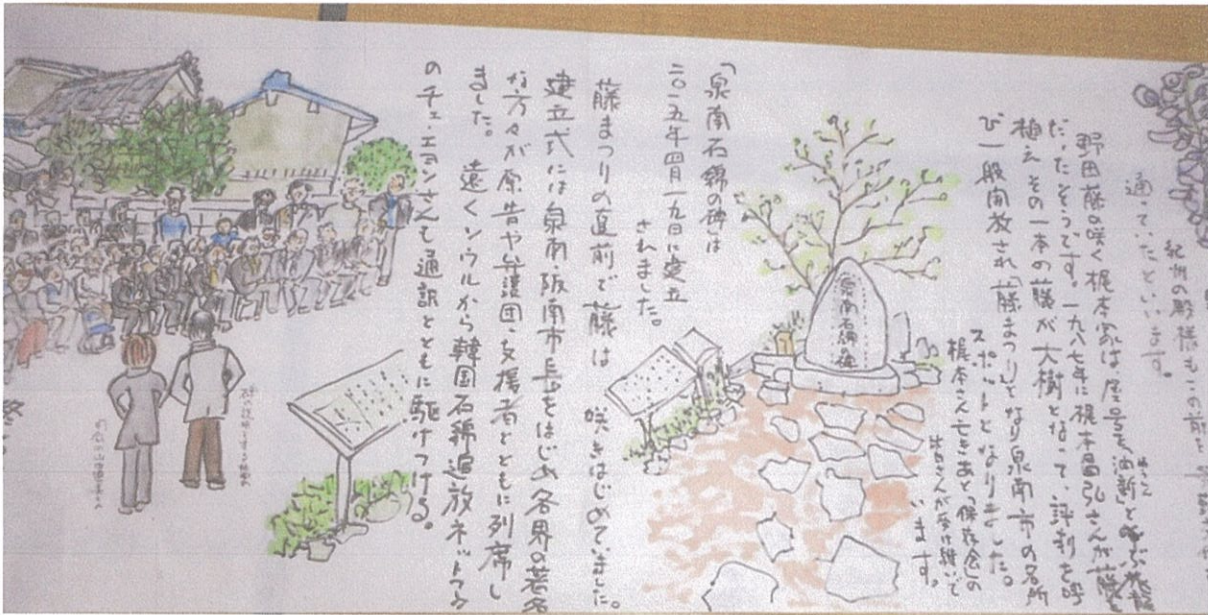 通っていたといいます。
紀州の殿様もこの前を
野田藤の咲く梶本家は、屋号を油新と呼ぶ旅籠
だったそうです。一九八七年に梶本昌弘さんが藤を
植え、その一本の藤が大樹となって、評判を呼
び一般開放され「藤まつり」となり泉南市の名所
スポットとなりました。
梶本さん亡きあと「保存会」の
さんが受け継いで
います。
泉南石綿の碑
「泉南石綿の碑」は
二〇一五年四月一九日に建立
されました。
藤まつりの直前で藤は 咲きはじめていました。
建立式には泉南・阪南市長をはじめ各界の著名
な方々が原告や弁護団・支援者とともに列席し
ました。 遠くソウルから韓国石綿追放ネットワーク
のチェ・エヨンさんも通訳とともに駆けつける。